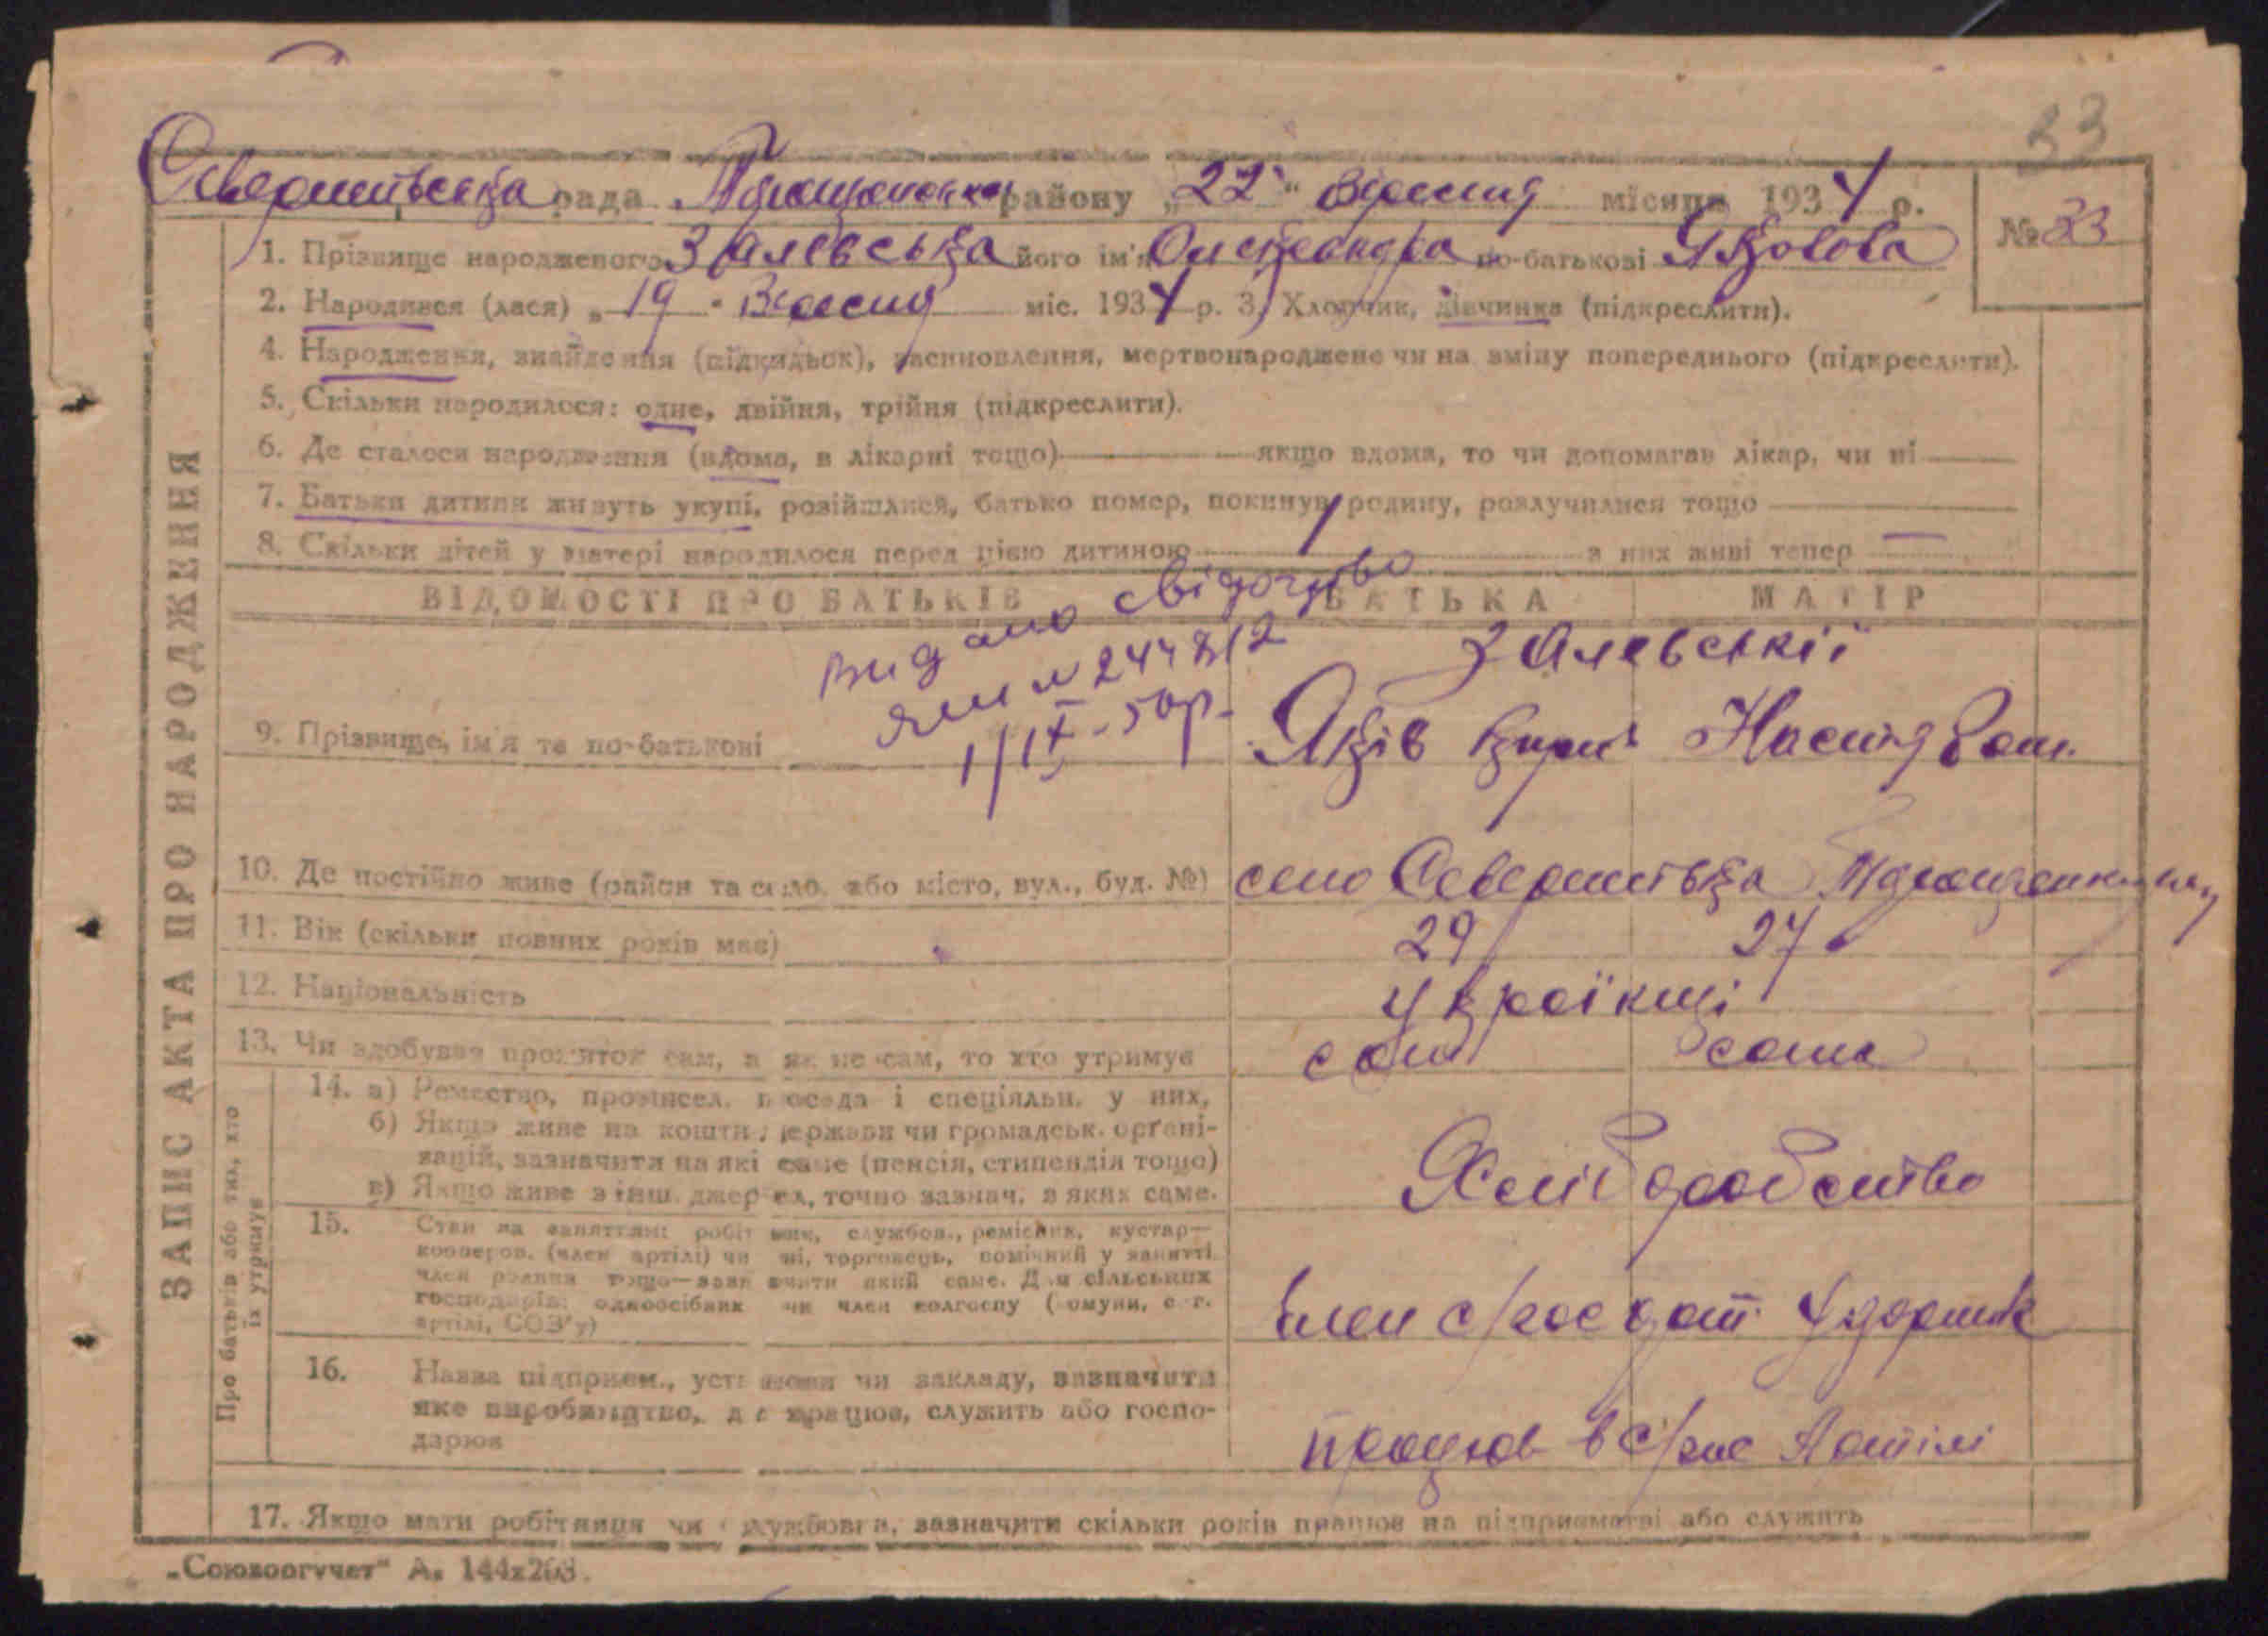 33
рада району „22“ Вересня місяця 1934 р.
№ 33
1. Прізвище народженого Залевська його ім'я Олександра по-батькові Яковова
2. Народився (лася) „19“ Вересня міс. 1934 р. 3. Хлопчик, дівчинка (підкреслити).
4. Народження, знайдення (підкидьок), засиновлення, мертвонароджене чи на зміну попереднього (підкреслити).
5. Скільки народилося: одне, двійня, трійня (підкреслити).
6. Де сталося народження (вдома, в лікарні тощо) якщо вдома, то чи допомагав лікар, чи ні —
7. Батьки дитини живуть укупі, розійшлися, батько помер, покинув родину, розлучилися тощо
8. Скільки дітей у матері народилося перед цією дитиною 1 з них живі тепер —
ВІДОМОСТІ ПРО БАТЬКІВ БАТЬКА МАТІР
видано свідоцтво
1/IX-50р.
Залевські
9. Прізвище, ім'я та по-батькові Яків
10. Де постійно живе (район та село або місто, вул., буд. №) село
11. Вік (скільки повних років має) 29 27
12. Національність Українці
13. Чи здобував прожиток сам, а як не сам, то хто утримує сам сама
Про батьків або тих, хто їх утримує
14. а) Ремество, промисел, посада і спеціяльн. у них,
б) Якщо живе на кошти держави чи громадськ. орґані-
зацій, зазначити на які саме (пенсія, стипендія тощо)
в) Якщо живе з інш. джерел, точно зазнач. з яких саме.
Хліборобство
15. Стан за заняттям: робітник, службов., ремісник, кустар—
кооперов. (член артілі) чи ні, торговець, помічний у занятті
член родини тощо—зазначити який саме. Для сільських
господарів: одноосібник чи член колгоспу (комуни, с.-г.
артілі, СОЗ'у)
член с/гос арт. Ударник
16. Назва підприєм., установи чи закладу, зазначити
яке виробництво, де працює, служить або госпо-
дарює
працює в с/гос Артілі
17. Якщо мати робітниця чи службовка, зазначити скільки років працює на підприємстві або служить
ЗАПИС АКТА ПРО НАРОДЖЕННЯ
„Союзоргучет“ А₅ 144x203.